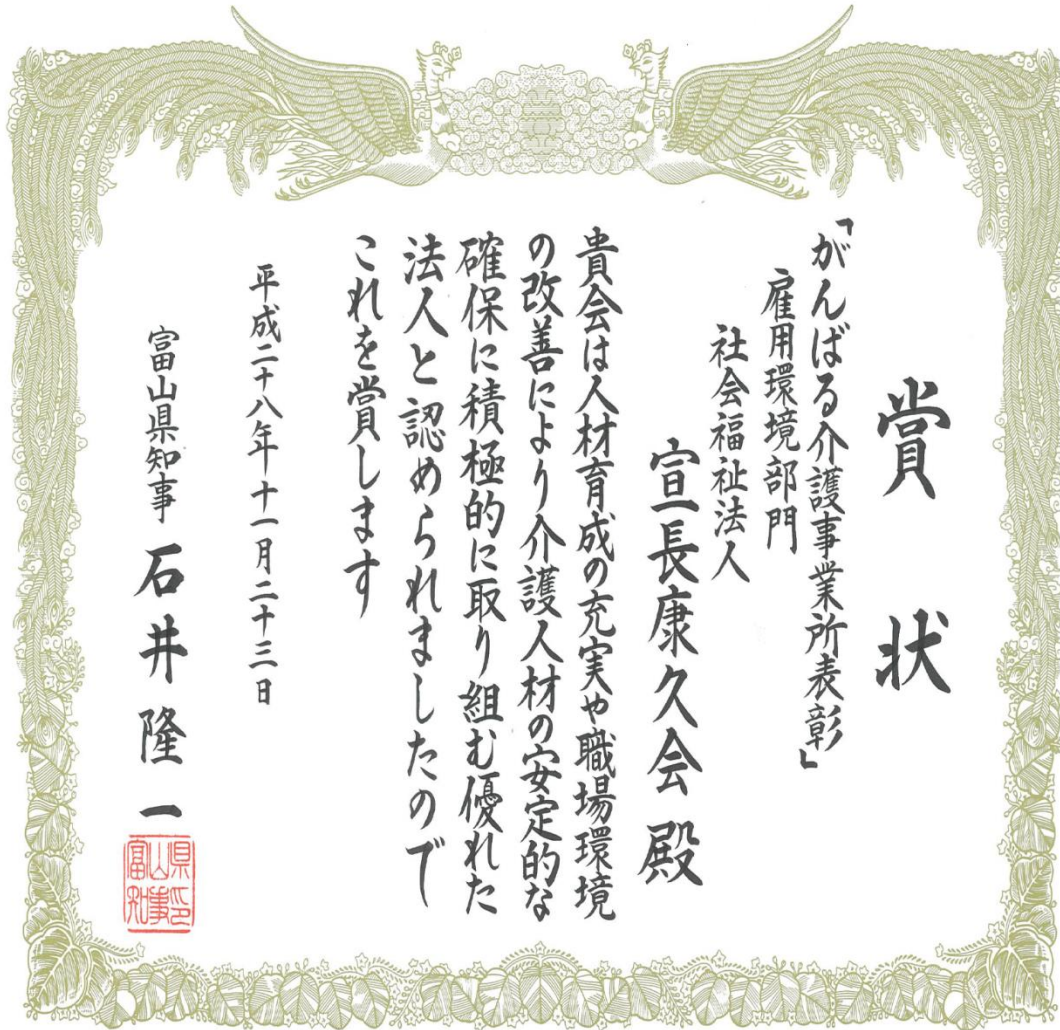 賞状
「がんばる介護事業所表彰」
雇用環境部門
社会福祉法人
宣長康久会殿
貴会は人材育成の充実や職場環境
の改善により介護人材の安定的な
確保に積極的に取り組む優れた
法人と認められましたので
これを賞します
平成二十八年十一月二十三日
富山県知事 石井隆一
富山県知事印